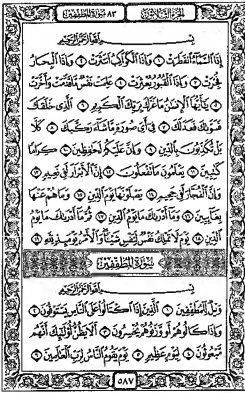 الجزء الثلاثون ٨٣ سورة المطففين
بِسْمِ ٱللَّهِ ٱلرَّحْمَٰنِ ٱلرَّحِيمِ
إِذَا ٱلسَّمَآءُ ٱنفَطَرَتْ ١ وَإِذَا ٱلْكَوَاكِبُ ٱنتَثَرَتْ ٢ وَإِذَا ٱلْبِحَارُ
فُجِّرَتْ ٣ وَإِذَا ٱلْقُبُورُ بُعْثِرَتْ ٤ عَلِمَتْ نَفْسٌ مَّا قَدَّمَتْ وَأَخَّرَتْ
٥ يَٰٓأَيُّهَا ٱلْإِنسَٰنُ مَا غَرَّكَ بِرَبِّكَ ٱلْكَرِيمِ ٦ ٱلَّذِى خَلَقَكَ
فَسَوَّىٰكَ فَعَدَلَكَ ٧ فِىٓ أَىِّ صُورَةٍ مَّا شَآءَ رَكَّبَكَ ٨ كَلَّا
بَلْ تُكَذِّبُونَ بِٱلدِّينِ ٩ وَإِنَّ عَلَيْكُمْ لَحَٰفِظِينَ ١٠ كِرَامًا
كَٰتِبِينَ ١١ يَعْلَمُونَ مَا تَفْعَلُونَ ١٢ إِنَّ ٱلْأَبْرَارَ لَفِى نَعِيمٍ ١٣
وَإِنَّ ٱلْفُجَّارَ لَفِى جَحِيمٍ ١٤ يَصْلَوْنَهَا يَوْمَ ٱلدِّينِ ١٥ وَمَا هُمْ عَنْهَا
بِغَآئِبِينَ ١٦ وَمَآ أَدْرَىٰكَ مَا يَوْمُ ٱلدِّينِ ١٧ ثُمَّ مَآ أَدْرَىٰكَ مَا يَوْمُ
ٱلدِّينِ ١٨ يَوْمَ لَا تَمْلِكُ نَفْسٌ لِّنَفْسٍ شَيْـًٔا وَٱلْأَمْرُ يَوْمَئِذٍ لِّلَّهِ ١٩
سورة المطففين
بِسْمِ ٱللَّهِ ٱلرَّحْمَٰنِ ٱلرَّحِيمِ
وَيْلٌ لِّلْمُطَفِّفِينَ ١ ٱلَّذِينَ إِذَا ٱكْتَالُوا۟ عَلَى ٱلنَّاسِ يَسْتَوْفُونَ ٢
وَإِذَا كَالُوهُمْ أَو وَّزَنُوهُمْ يُخْسِرُونَ ٣ أَلَا يَظُنُّ أُو۟لَٰٓئِكَ أَنَّهُم
مَّبْعُوثُونَ ٤ لِيَوْمٍ عَظِيمٍ ٥ يَوْمَ يَقُومُ ٱلنَّاسُ لِرَبِّ ٱلْعَٰلَمِينَ ٦
٥٨٧